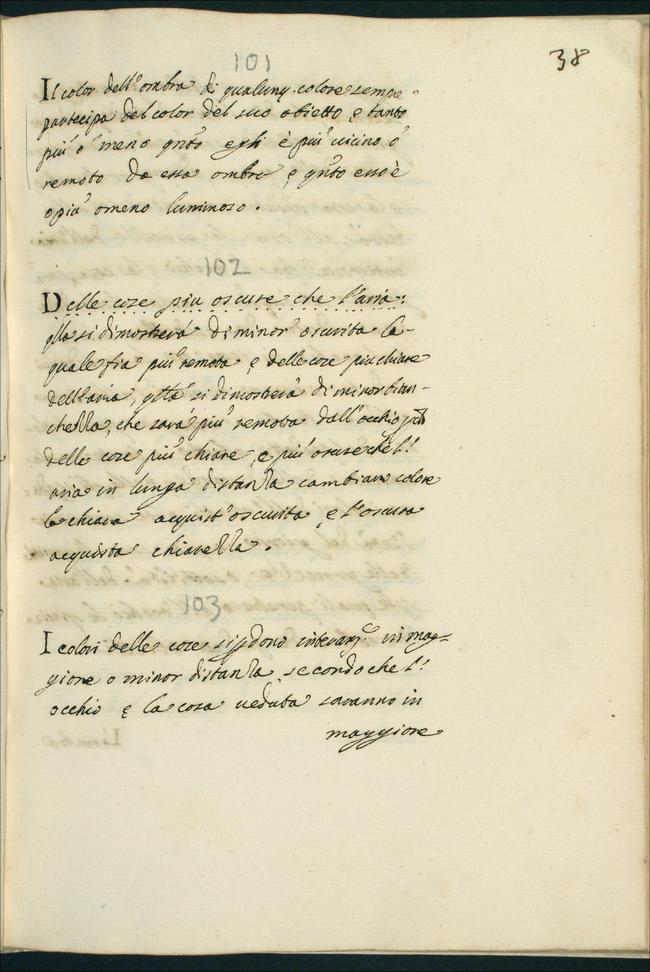 38
101
Il color dell'ombra di qualunq. colore sempre
partecipa del color del suo obietto, e tanto
più o meno qnto egli è più uicino o
remoto da essa ombra, e qnto esso è
o più o meno luminoso.
102
Delle cose piu oscure che l'aria:
qlla si dimosterà di minor oscurita la-
quale fia più remota e delle cose piu chiare
dell'aria, qlla si dimosterà di minor bian-
chezza, che sarà più remota dall'occhio, pchè
delle cose più chiare, e più oscure chè l'
aria in lunga distanza cambiano colore
la chiara acquist'oscurita e l'oscura
acquista chiarezza.
103
I colori delle cose si pdono interam.e in mag=
giore o minor distanza, secondo che l'
occhio e la cosa ueduta saranno in
maggiore